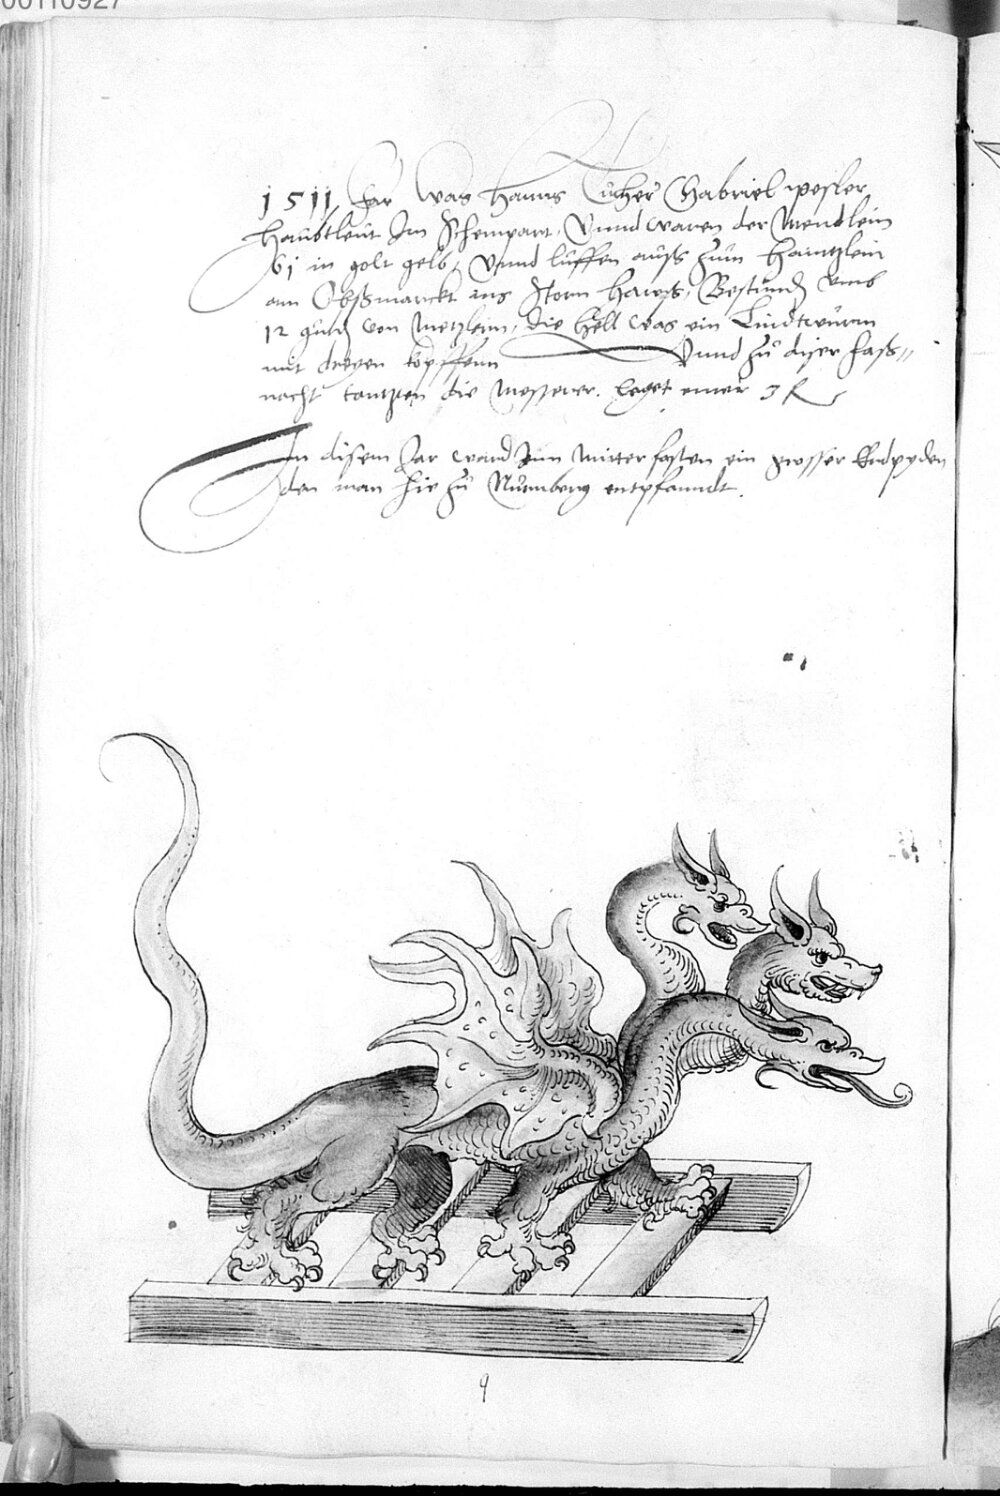 00110927
1511 Jar was Hanns Tucher Gabriel pesler
Haubtleut Im Schempart, Vnnd waren der Mendlein
61 in golt gelb, Vnnd luffen auß zum Haintzlein
am Obßmarckt ins Storn Hawß, Bestundß vmb
12 guld von Metzlern, die Hell was ein Lindtwurm
mit dreyen köpffenn Vnnd zu diser faß„
nacht tantzten die Messerer. Leget einer 3
In disem Jar ward zum mitterfasten ein grosser Erdpyden
den man hie zu Nurmberg entpfanndt.
9